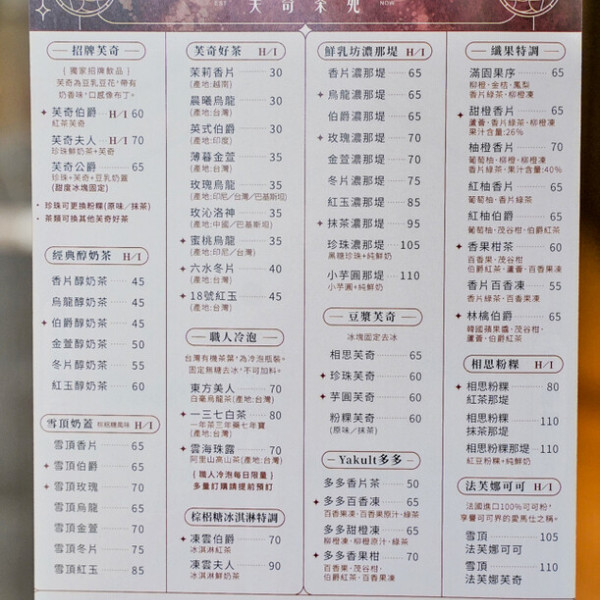 芙奇茶苑
EST
NOW
招牌芙奇
{ 獨家招牌飲品 }
芙奇為豆乳豆花,帶有
奶香味,口感像布丁。
✦ 芙奇伯爵 H/I 60
紅茶芙奇
芙奇夫人 H/I 70
珍珠鮮奶茶+芙奇
芙奇公爵 65
珍珠+芙奇+豆乳奶蓋
(甜度冰塊固定)
• 珍珠可更換粉粿(原味/抹茶)
• 茶類可換其他芙奇好茶
經典醇奶茶 H/I
香片醇奶茶 45
烏龍醇奶茶 45
✦ 伯爵醇奶茶 45
金萱醇奶茶 50
冬片醇奶茶 55
紅玉醇奶茶 60
雪頂奶蓋 棕梠糖風味 H/I
雪頂香片 65
✦ 雪頂伯爵 65
✦ 雪頂玫瑰 70
雪頂烏龍 65
雪頂金萱 70
雪頂冬片 75
雪頂紅玉 85
芙奇好茶 H/I
茉莉香片 30
(產地:越南)
晨曦烏龍 30
(產地:台灣)
英式伯爵 30
(產地:印度)
薄暮金萱 35
(產地:台灣)
玫瑰烏龍 35
(產地:印尼/台灣/巴基斯坦)
玫沁洛神 35
(產地:中國/巴基斯坦)
✦ 蜜桃烏龍 35
(產地:印尼/台灣)
✦ 六水冬片 40
(產地:台灣)
✦ 18號紅玉 45
(產地:台灣)
職人冷泡
台灣有機茶葉,為冷泡瓶裝。
固定無糖去冰,不可加料。
東方美人 70
白毫烏龍茶(產地:台灣)
✦ 一三七白茶 80
一年茶三年藥七年寶
(產地:台灣)
✦ 雲海珠露 70
阿里山高山茶(產地:台灣)
{ 職人冷泡每日限量 }
多量訂購請提前預訂
棕梠糖冰淇淋特調
✦ 凍雲伯爵 70
冰淇淋紅茶
凍雲夫人 90
冰淇淋鮮奶茶
鮮乳坊濃那堤 H/I
香片濃那堤 65
✦ 烏龍濃那堤 65
伯爵濃那堤 65
✦ 玫瑰濃那堤 70
金萱濃那堤 70
冬片濃那堤 75
紅玉濃那堤 85
✦ 抹茶濃那堤 95
珍珠濃那堤 105
黑糖珍珠+純鮮奶
小芋圓那堤 110
小芋圓+純鮮奶
豆漿芙奇
冰塊固定去冰
相思芙奇 65
✦ 珍珠芙奇 60
✦ 芋圓芙奇 60
粉粿芙奇 60
(原味/抹茶)
Yakult多多
多多香片茶 50
✦ 多多百香凍 65
百香果凍·百香果原汁·綠茶
多多甜橙凍 65
柳橙凍·柳橙原汁·綠茶
✦ 多多香果柑 70
百香果·茂谷柑·
伯爵紅茶·百香果凍
纖果特調
滿園果序 65
柳橙·金桔·鳳梨
香片綠茶·柳橙凍
✦ 甜橙香片 65
蘆薈·香片綠茶·柳橙凍
果汁含量:26%
柚橙香片 70
葡萄柚·柳橙·柳橙凍
香片綠茶·果汁含量:40%
紅柚香片 65
葡萄柚·香片綠茶
紅柚伯爵 65
葡萄柚·茂谷柑·伯爵紅茶
✦ 香果柑茶 60
百香果·茂谷柑
伯爵紅茶·蘆薈·百香果凍
香片百香凍 55
香片綠茶·百香果凍
✦ 林檎伯爵 65
韓國蘋果醬·茂谷柑·
蘆薈·伯爵紅茶
相思粉粿 H/I
✦ 相思粉粿 80
紅茶那堤
相思粉粿 110
抹茶那堤
相思粉粿那堤 110
紅豆粉粿+純鮮奶
法芙娜可可 H/I
法國進口100%可可粉,
享譽可可界的愛馬仕之稱。
雪頂 105
法芙娜可可
雪頂 110
法芙娜芙奇